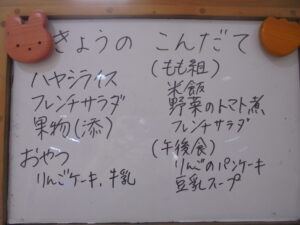 きょうの こんだて
ハヤシライス
フレンチサラダ
果物(添)
おやつ
りんごケーキ、牛乳
(もも組)
米飯
野菜のトマト煮
フレンチサラダ
(午後食)
りんごのパンケーキ
豆乳スープ